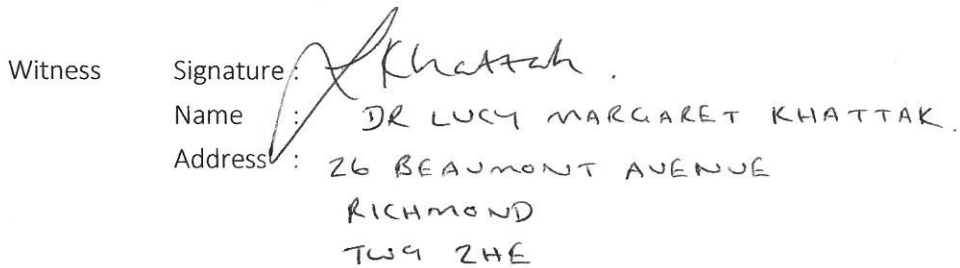 Witness Signature : L Khattak.
Name : DR LUCY MARGARET KHATTAK.
Address : 26 BEAUMONT AVENUE
RICHMOND
TW9 2HE